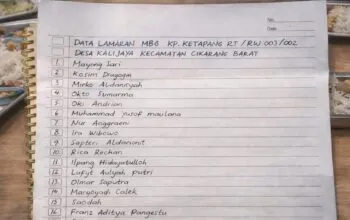 No:
Date:
DATA LAMARAN MBG KP. KETAPANG RT/RW. 003/002
DESA KALIJAYA KECAMATAN CIKARANG BARAT
1. Mayang Sari
2. Kosim Dragon
3. Mirko Aldiansyah
4. Okto Sumarma
5. Oki Andrian
6. Muhammad yusof maulana
7. Nur Anggraeni
8. Ira Wibowo
9. Saptri
10. Rica Rechan
11. Ilpang Hidayatulloh
12. Lufyt Aulyah putri
13. Olmar Saputra
14. Maryoyadi Calek
15. Saodah
16. Franz Aditya Pangestu